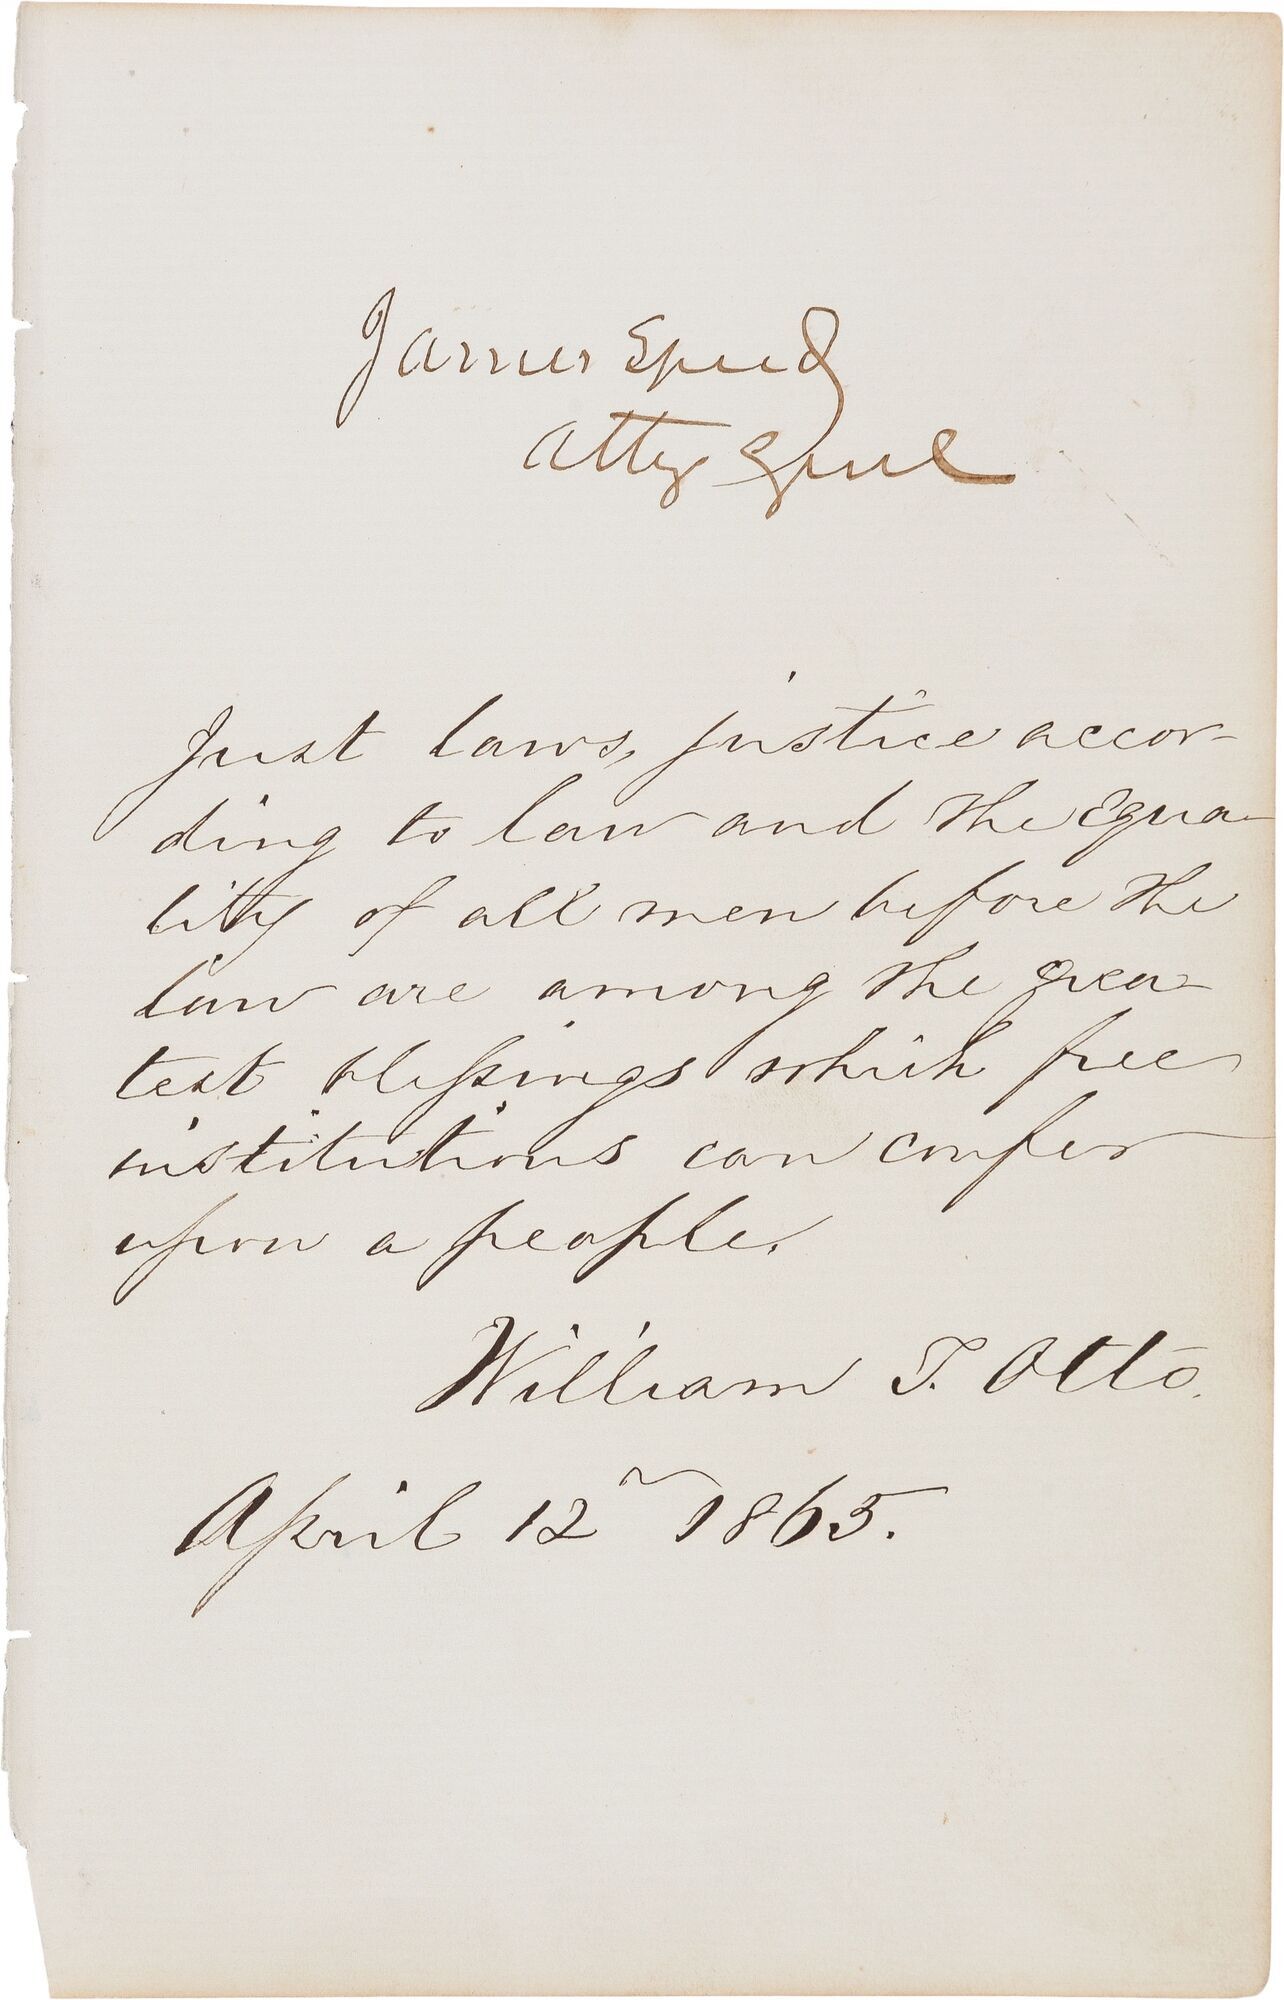 James Speed
Atty Genl
Just laws, justice accor-
ding to law and the equa-
lity of all men before the
law are among the grea-
test blessings which free
institutions can confer
upon a people.
William T. Otto.
April 12 1865.